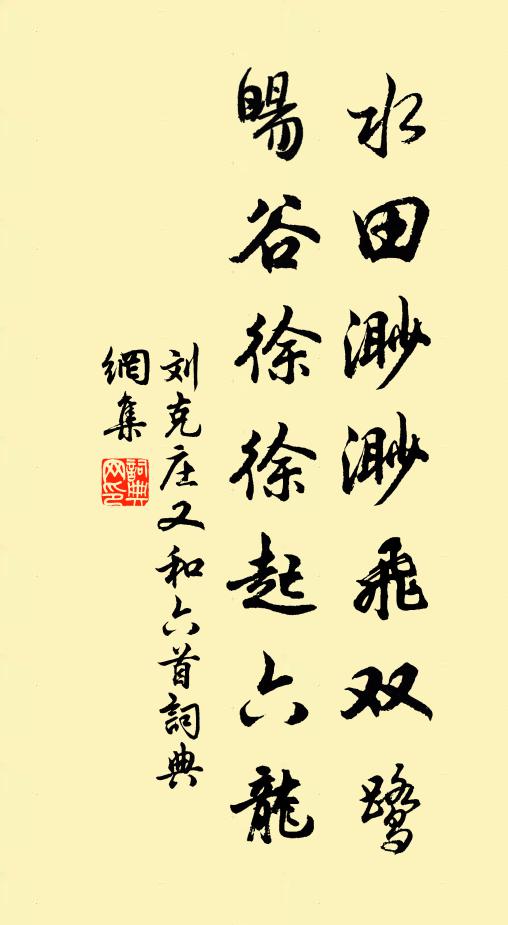 水田渺渺飛双鷺
暘谷徐徐起六龍
刘克庄又和六首詞典
網集
詞典網印